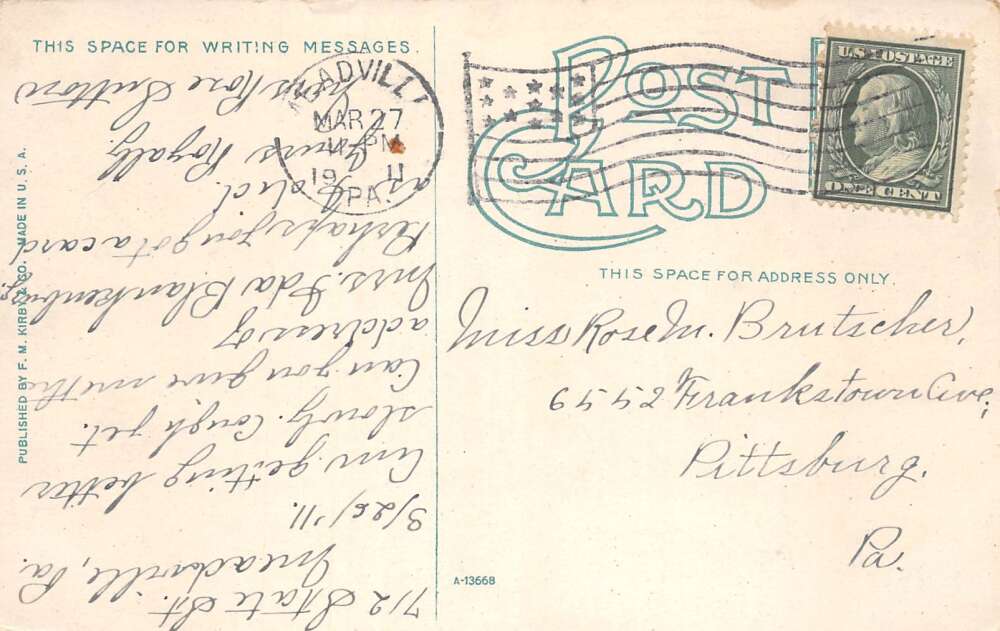 THIS SPACE FOR WRITING MESSAGES.
POST
CARD
U.S. POSTAGE
ONE CENT
MEADVILLE
MAR 27
PM
19 11
PA.
THIS SPACE FOR ADDRESS ONLY.
Miss Rose M. Brutscher,
6552 Frankstown Ave;
Pittsburg.
Pa.
712 State St.
Meadville, Pa.
3/26/'11.
Am getting better
slowly. Cough yet.
Can you give me the
address of
Mrs. Ida Blankenbuger
Perhaps you got a card
as I did.
Yours Royally
Miss Rose Sutton
PUBLISHED BY F. M. KIRBY & CO. MADE IN U. S. A.
A-13668